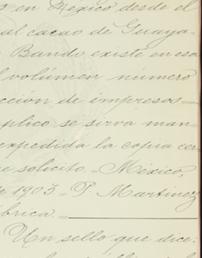 en Mexico desde el
al cacao de Guaya-
Bando existe en esa
el volúmen número
cción de impresos—
uplico se sirva man-
expedida la copia cer
e solicito.—México,
de 1903—P. Martinez
úbrica.
Un sello que dice: